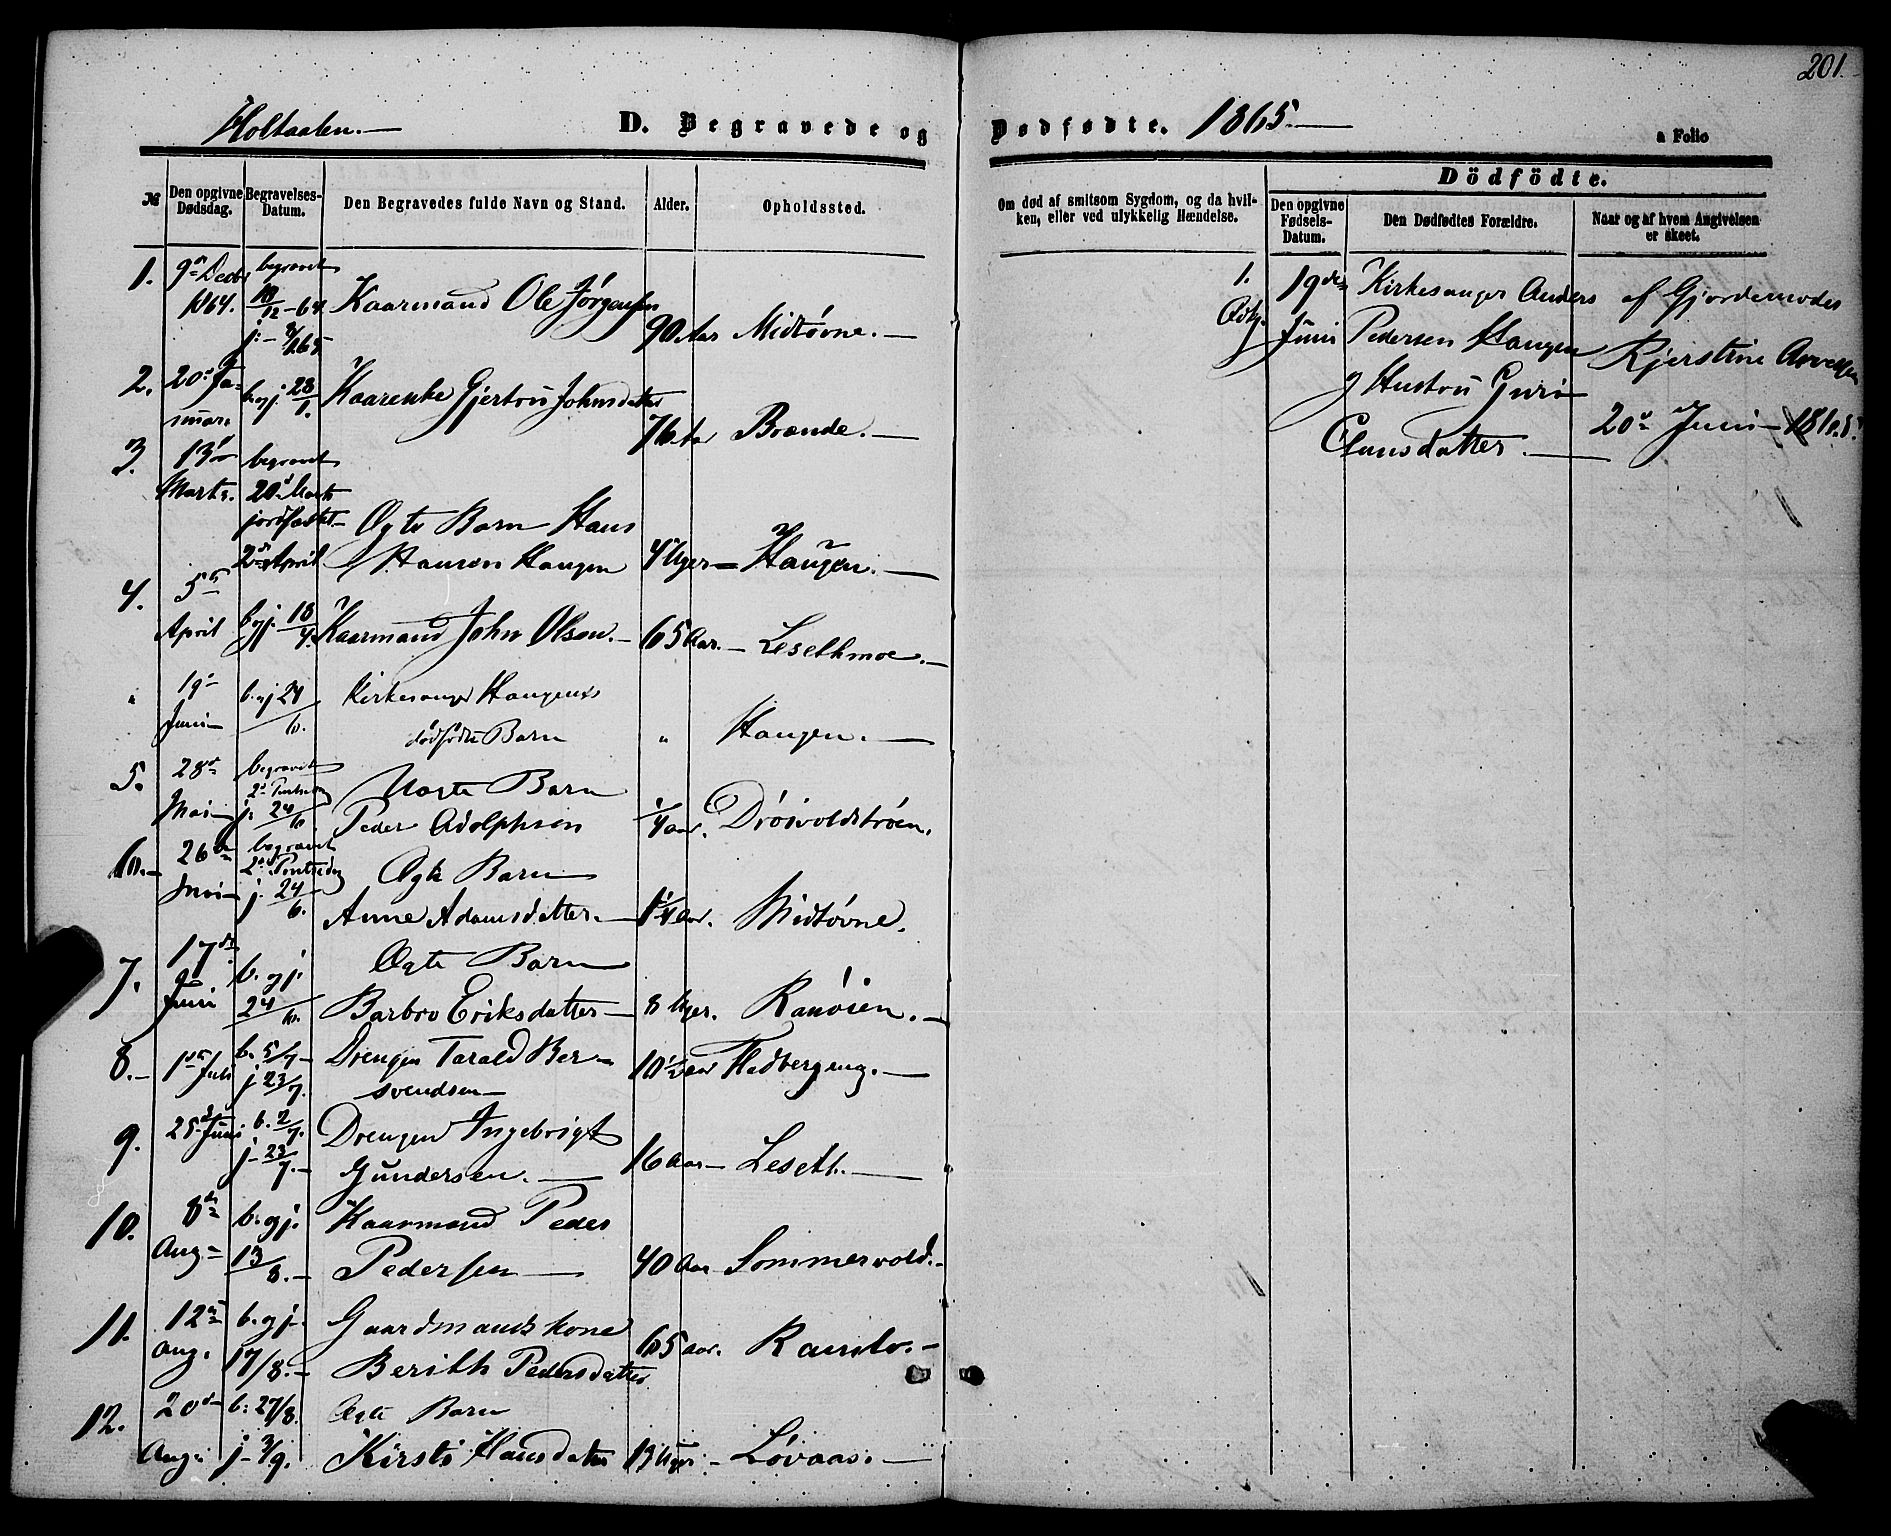 201.
Holtaalen.
D. Begravede og
Dødfødte. 1865.
a Folio
№
Den opgivne Dødsdag.
Begravelses-Datum.
Den Begravedes fulde Navn og Stand.
Alder.
Opholdssted.
Om død af smitsom Sygdom, og da hvilken, eller ved ulykkelig Hændelse.
Dödfödte.
Den opgivne Fødsels-Datum.
Den Dødfødtes Forældre.
Naar og af hvem Angivelsen er skeet.
1. 9de Decbr 1864. begravet 18/12-64 Kaarmand Ole Jørgensen 90 Aar Midtøvne.
2. 20de Januar. b. og j. 23/1. Kaarenke Gjertru Johnsdatter 76 Aar Brænde.
3. 13de Marts. begravet 20de Marts jordfæstet 2den April Ægte Barn Hans Hansen Haugen 4 Uger Haugen.
4. 5te April b. og j. 18/4. Kaarmand John Olsen. 65 Aar. Lesethmoe.
" 19de Juni b. og j. 24/6. Kirkesanger Haugens dødfødte Barn " Haugen.
5. 28de Mai begravet j. 24/6. Uægte Barn Peder Adolphsen 1/4 aar.
6. 26de Mai begravet 2den Pintsedag j. 24/6. Ægte Barn Anne Adamsdatter. 1 1/4 aar. Midtøvne.
7. 17de Juni b. og j. 24/6. Ægte Barn Barbro Eriksdatter 8 Uger. Ramøien.
8. 1ste Juli b. 5/7 j. 23/7. Drengen Tarald Bersvendsen 10 1/2 aar Fladbergeng.
9. 25de Juni b. 2/7. j. 23/7. Drengen Ingebrigt Gundersen. 16 Aar Leseth.
10. 8de Aug b. og j. 13/8. Kaarmand Peder Pedersen 40 Aar Sommervold.
11. 12te Aug. b. og j. 17/8. Gaardmandskone Berith Pedersdatter 65 aar. Ramlo.
12. 20de Aug. b. 27/8. j. 3/9. Ægte Barn Kirsti Hansdatter 13 Uger. Løvaas.
1. 19de Juni Kirkesanger Anders Pedersen Haugen og Hustru Guri Clausdatter. af Gjordemoder Kjerstine 20de Juni 1865.